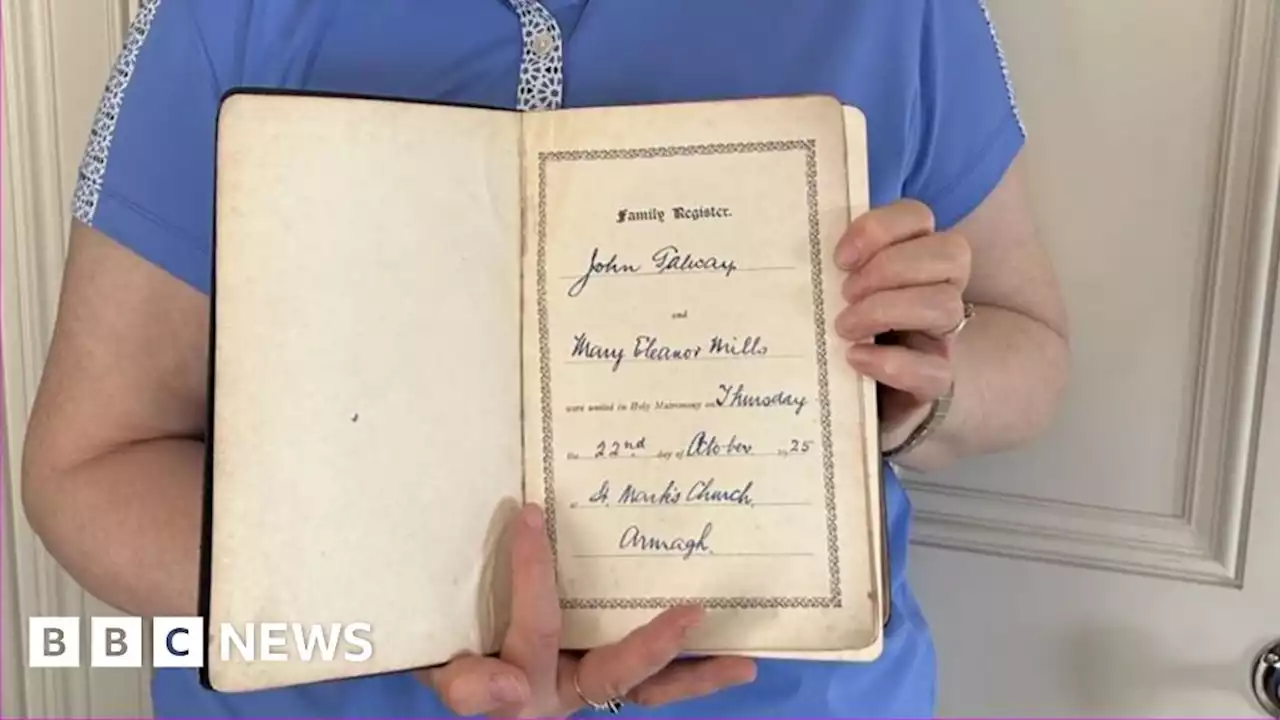 Family Register.
John Galway
and
Mary Eleanor Mills
were united in Holy Matrimony on Thursday
the 22nd day of October 1925
at St. Mark's Church,
Armagh.
BBC NEWS